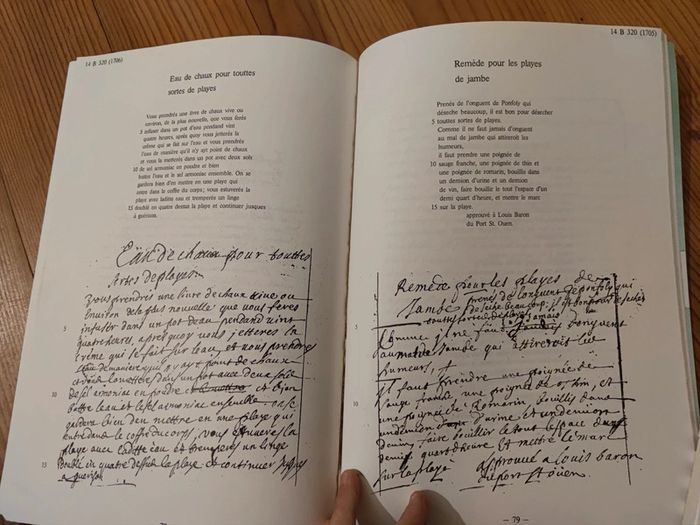 14 B 320 (1706)
Eau de chaux pour touttes
sortes de playes
Vous prendrés une livre de chaux vive ou
environ, de la plus nouvelle, que vous ferés
5 infuser dans un pot d'eau pendand vint
quatre heures, après quoy vous jetterés la
crème qui se fait sur l'eau et vous prendrés
l'eau de manière qu'il n'y ayt point de chaux
et vous la metterés dans un pot avec deux sols
10 de sel armoniac en poudre et bien
battre l'eau et le sel armoniac ensemble. On se
gardera bien d'en mettre en une playe qui
entre dans le coffre du corps; vous estuverés la
playe avec laditte eau et tremperés un linge
15 double en quatre dessus la playe et continuer jusques
à guérison.
Eau de chaux pour touttes
sortes de playes
vous prendres une livre de chaux vive ou
environ de la plus nouvelle que vous feres
5 infuser dans un pot deau pendand vint
quatre heures, apres quoy vous jetteres la
creme qui se fait sur leau, et vous prendres
leau de maniere quil ny ayt point de chaux
et vous la metteres dans un pot avec deux sols
10 de sel armoniac en poudre et bien
battre leau et le sel armoniac ensemble on se
gardera bien den mettre en une playe qui
entre dans le coffre du corps, vous estuveres la
playe avec laditte eau et tremperes un linge
15 double en quatre dessus la playe et continuer jusques
a guerison
14 B 320 (1705)
Remède pour les playes
de jambe
Prenés de l'onguent de Ponfoly qui
déseche beaucoup, il est bon pour désecher
5 touttes sortes de playes.
Comme il ne faut jamais d'onguent
au mal de jambe qui attireroit les
humeurs,
il faut prendre une poignée de
10 sauge franche, une poignée de thin et
une poignée de romarin, bouillis dans
un demion d'urine et un demion
de vin, faire bouillir le tout l'espace d'un
demi quart d'heure, et mettre le marc
15 sur la playe.
approuvé à Louis Baron
du Port St. Ouen.
Remede pour les playes de
Jambe prenes de longuent de ponfoly qui
deseche beaucoup, il est bon pour desecher
touttes sortes de playes
5 Comme il ne faut jamais donguent
au mal de Jambe qui attireroit les
humeurs,
il faut prendre une poignée de
10 sauge franche, une poignée de thin, et
une poignée de Romarin, bouillis dans
un demion durine et un demion
de vin, faire bouillir le tout lespace dun
demi quart dheure et mettre le marc
15 sur la playe approuvé a louis baron
du port St ouen.
— 79 —